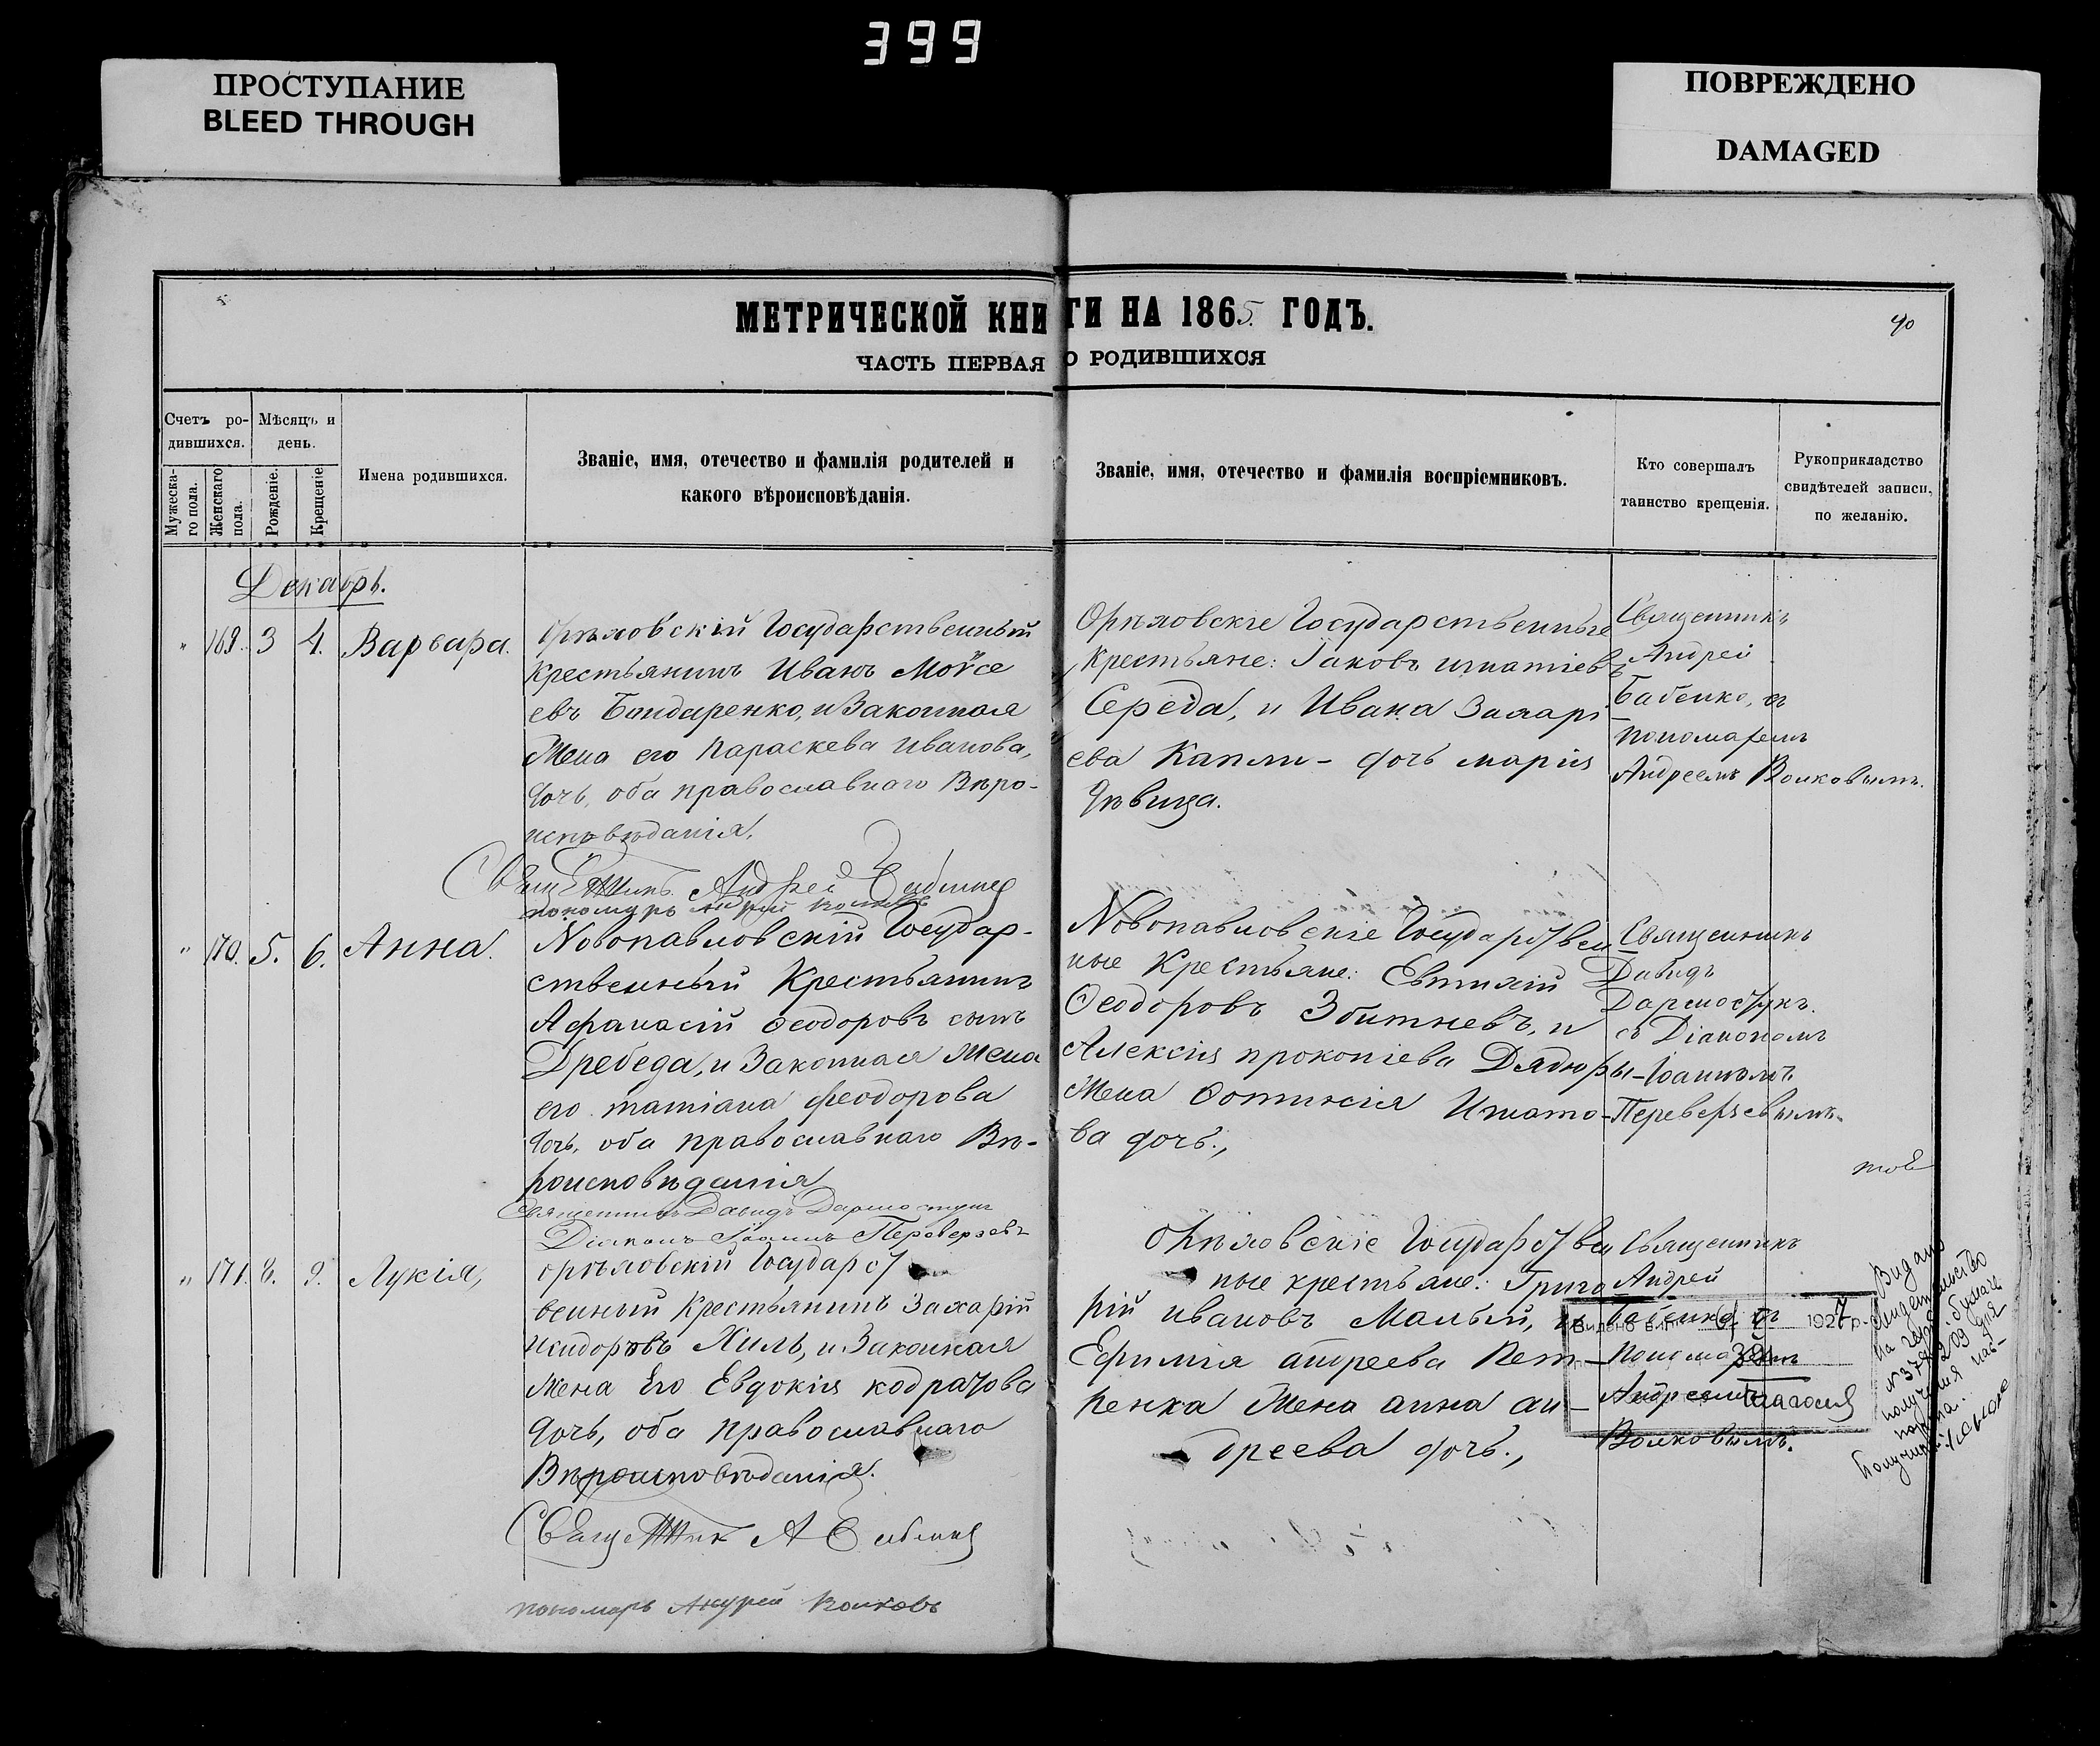 399
ПРОСТУПАНИЕ
BLEED THROUGH
ПОВРЕЖДЕНО
DAMAGED
МЕТРИЧЕСКОЙ КНИГИ НА 1865. ГОДЪ.
40
ЧАСТЬ ПЕРВАЯ О РОДИВШИХСЯ
Счетъ ро-
дившихся.
Мужеска-
го пола.
Женскаго
пола.
Мѣсяцъ и
день.
Рожденіе.
Крещеніе
Имена родившихся.
Званіе, имя, отечество и фамилія родителей и
какого вѣроисповѣданія.
Званіе, имя, отечество и фамилія воспріемниковъ.
Кто совершалъ
таинство крещенія.
Рукоприкладство
свидѣтелей записи,
по желанію.
Декабрь.
" 169. 3 4. Варвара.
Орѣховскій Государственный
крестьянинъ Иванъ Моѵсе
евъ Бондаренко, и Законная
Жена его Параскева Иванова,
дочь, оба православнаго Вѣро-
исповѣданія.
Священникъ Андрей
пономарь Андрей Волковъ
Орѣховскіе Государственные
крестьяне: Іаковъ игнатіевъ
Середа, и Ивана Захарі
ева Капли- дочь марія
дѣвица.
Священникъ
Андрей
Бабенко, съ
пономаремъ
Андреемъ Волковымъ.
" 170. 5. 6. Анна.
Новопавловскій Государ-
ственный Крестьянинъ
Афанасій Ѳеодоровъ сынъ
Дребеда, и Законная Жена
его татіана феодорова
дочь, оба православнаго Вѣ-
роисповѣданія
Священникъ Давидъ
Діаконъ Іоаннъ Переверзевъ
Новопавловскіе Государствен
ные Крестьяне: Евтихій
Ѳеодоровъ Збитневъ, и
Алексія прокопіева Дядюры-
Жена Фотинія Игнато-
ва дочь.,
Священникъ
Давидъ
съ Діакономъ
Іоанномъ
Переверзевымъ.
" 171. 8. 9. Лукія,
орѣховскій Государст
венный Крестьянинъ Захарій
исидоровъ Хиль, и Законная
жена Его Евдокія кодратова
дочь, оба православнаго
Вѣроисповѣданія.
Священникъ А
пономарь Андрей Волковъ
орѣховскіе Государствен
ные крестьяне: Григо
рій ивановъ Малый, и
Ефимія андреева Пет-
ренка Жена анна ан-
дреева дочь.,
Священникъ
Андрей
Бабенко, съ
Пономаремъ
Андреемъ
Волковымъ.
1927 р.
Видано